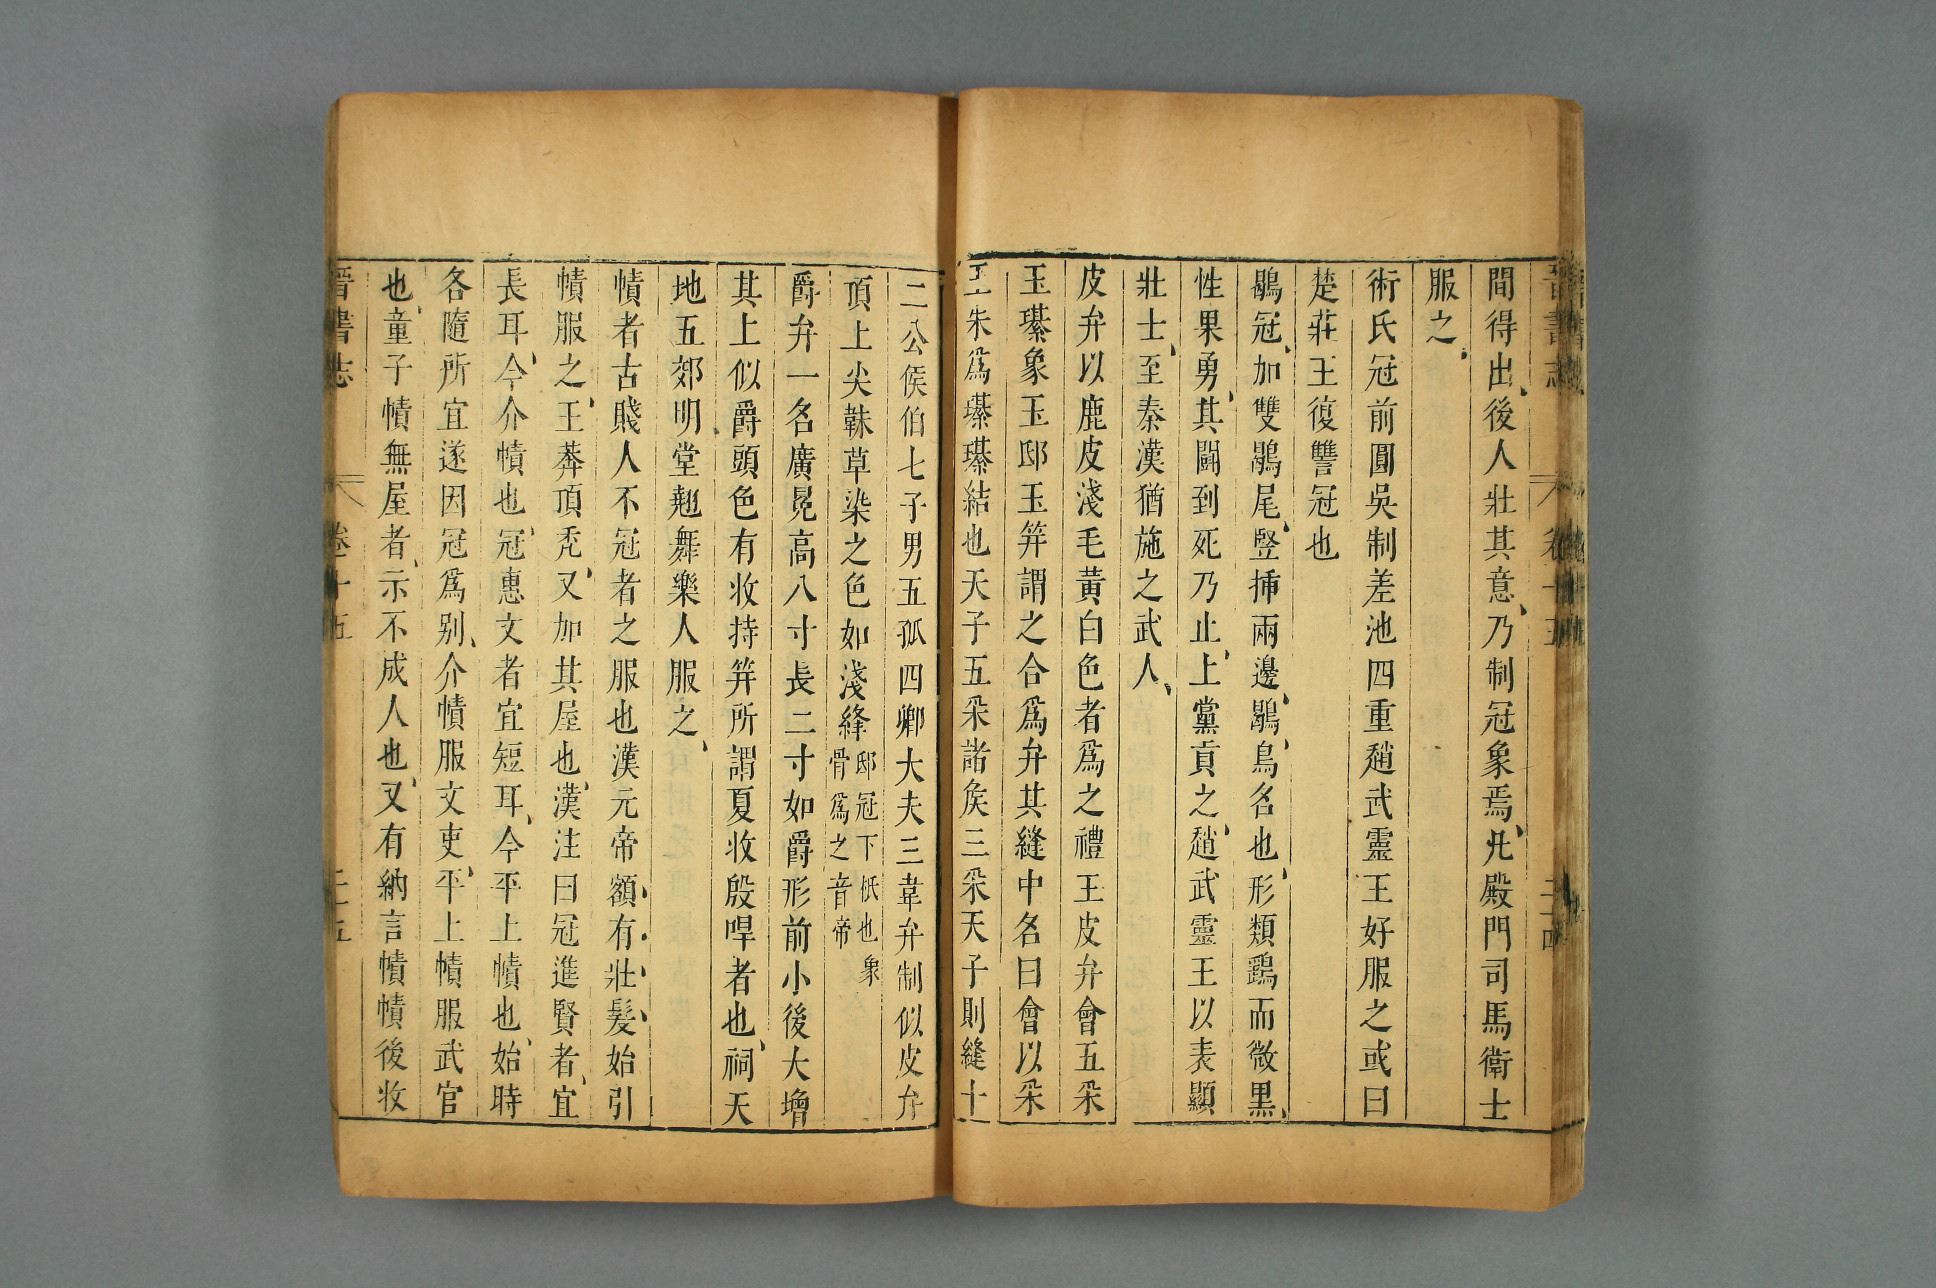 間得出後人壯其意乃制冠象焉凡殿門司馬衛士
服之
術氏冠前圓吳制差池四重趙武靈王好服之或曰
楚莊王復讐冠也
鶡冠加雙鶡尾豎揷兩邊鶡鳥名也形類鷂而微黑
性果勇其鬭到死乃止上黨貢之趙武靈王以表顯
壯士至秦漢猶施之武人
皮弁以鹿皮淺毛黃白色者爲之禮王皮弁會五采
玉璂象玉邸玉笄謂之合爲弁其縫中名曰會以采
玉朱爲璂璂結也天子五采諸矦三采天子則縫十
二公矦伯七子男五孤四卿大夫三韋弁制似皮弁
頂上尖韎草染之色如淺絳邸冠下柢也象骨爲之音帝
爵弁一名廣冕高八寸長二寸如爵形前小後大增
其上似爵頭色有收持笄所謂夏收殷哻者也祠天
地五郊明堂翹舞樂人服之
幘者古賤人不冠者之服也漢元帝額有壯髮始引
幘服之王莽頂禿又加其屋也漢注曰冠進賢者宜
長耳今介幘也冠惠文者宜短耳今平上幘也始時
各隨所宜遂因冠爲别介幘服文吏平上幘服武官
也童子幘無屋者示不成人也又有納言幘幘後收
晉書志 卷十五 二十五